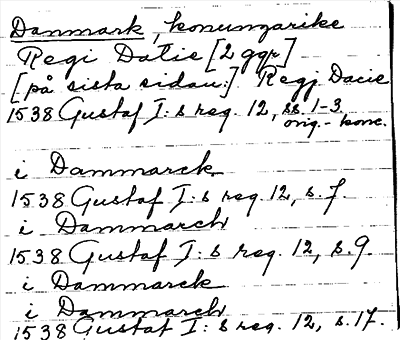 Danmark, konungarike
Regi Datie [2 ggr]
[på sista sidan:] Regj Dacie
1538 Gustaf I:s reg. 12, ss. 1-3
orig.- konc.
i Dammarck
1538 Gustaf I:s reg. 12, s. 7.
i Dammarch
1538 Gustaf I:s reg. 12, s. 9.
i Dammarck
i Dammarch
1538 Gustaf I:s reg. 12, s. 17.